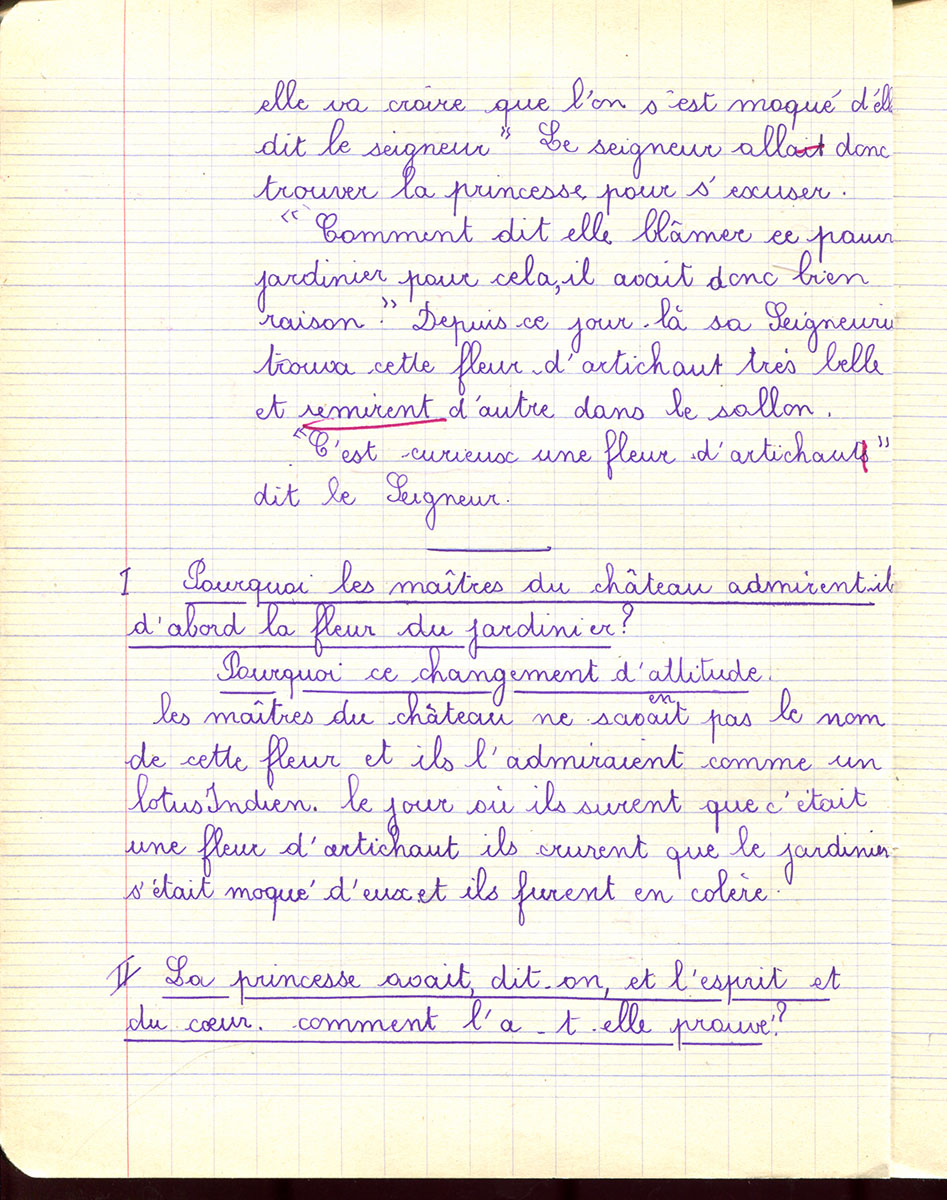 elle va croire que l'on s'est moqué d'ell
dit le seigneur" Le seigneur allait donc
trouver la princesse, pour s'excuser.
"Comment dit elle blâmer ce pauvr
jardinier pour cela, il avait donc bien
raison." Depuis ce jour-là sa Seigneurie
trouva cette fleur d'artichaut très belle
et remirent d'autre dans le sallon.
"C'est curieux une fleur d'artichauts"
dit le Seigneur.
I Pourquoi les maîtres du château admirent-il
d'abord la fleur du jardinier?
Pourquoi ce changement d'attitude.
les maîtres du château ne savaitent pas le nom
de cette fleur et ils l'admiraient comme un
lotus Indien. le jour où ils surent que c'était
une fleur d'artichaut ils crurent que le jardinier
s'était moqué d'eux et ils furent en colère.
II La princesse avait, dit-on, et l'esprit et
du cœur. comment l'a-t-elle prouvé?